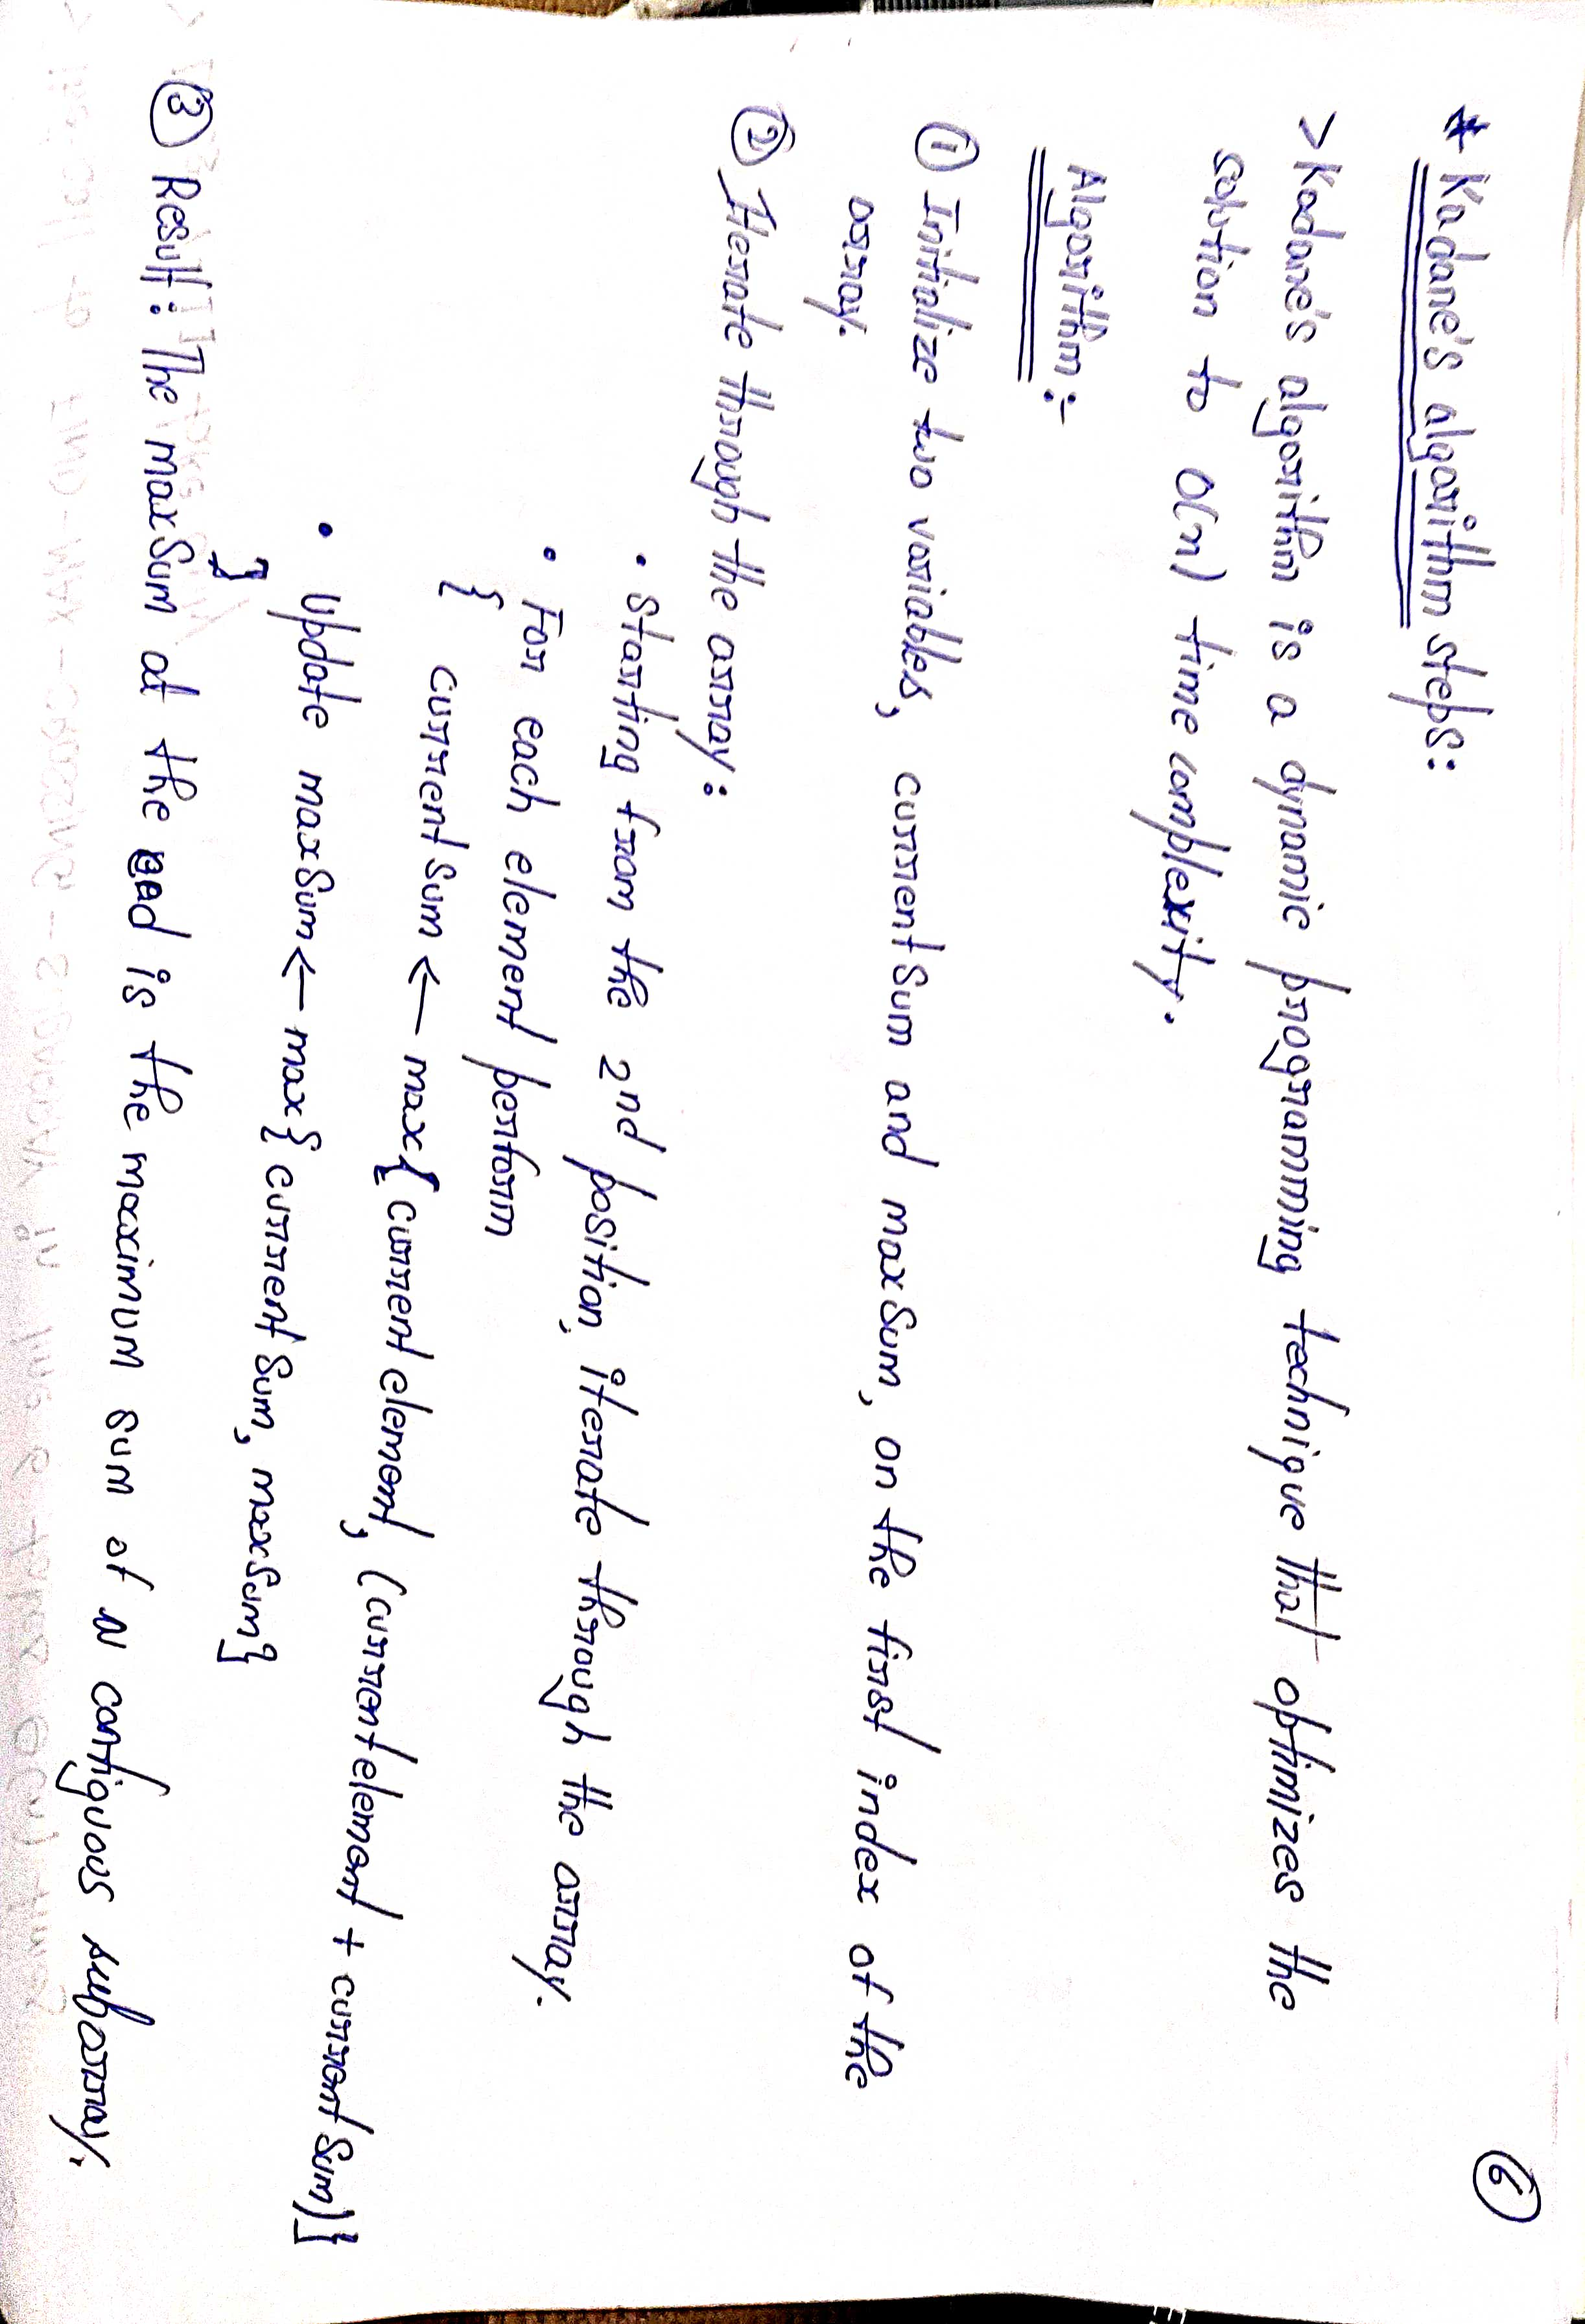 6
* Kadane's algorithm steps:
> Kadane's algorithm is a dynamic programming technique that optimizes the
solution to O(n) time complexity.
Algorithm:-
① Initialize two variables, currentSum and maxSum, on the first index of the
array.
② Iterate through the array:
• Starting from the 2nd position, iterate through the array.
• For each element perform
{ currentSum ← max{current element, (current element + currentSum)}
• Update maxSum ← max{currentSum, maxSum}
}
③ Result: The maxSum at the end is the maximum sum of N contiguous subarray.